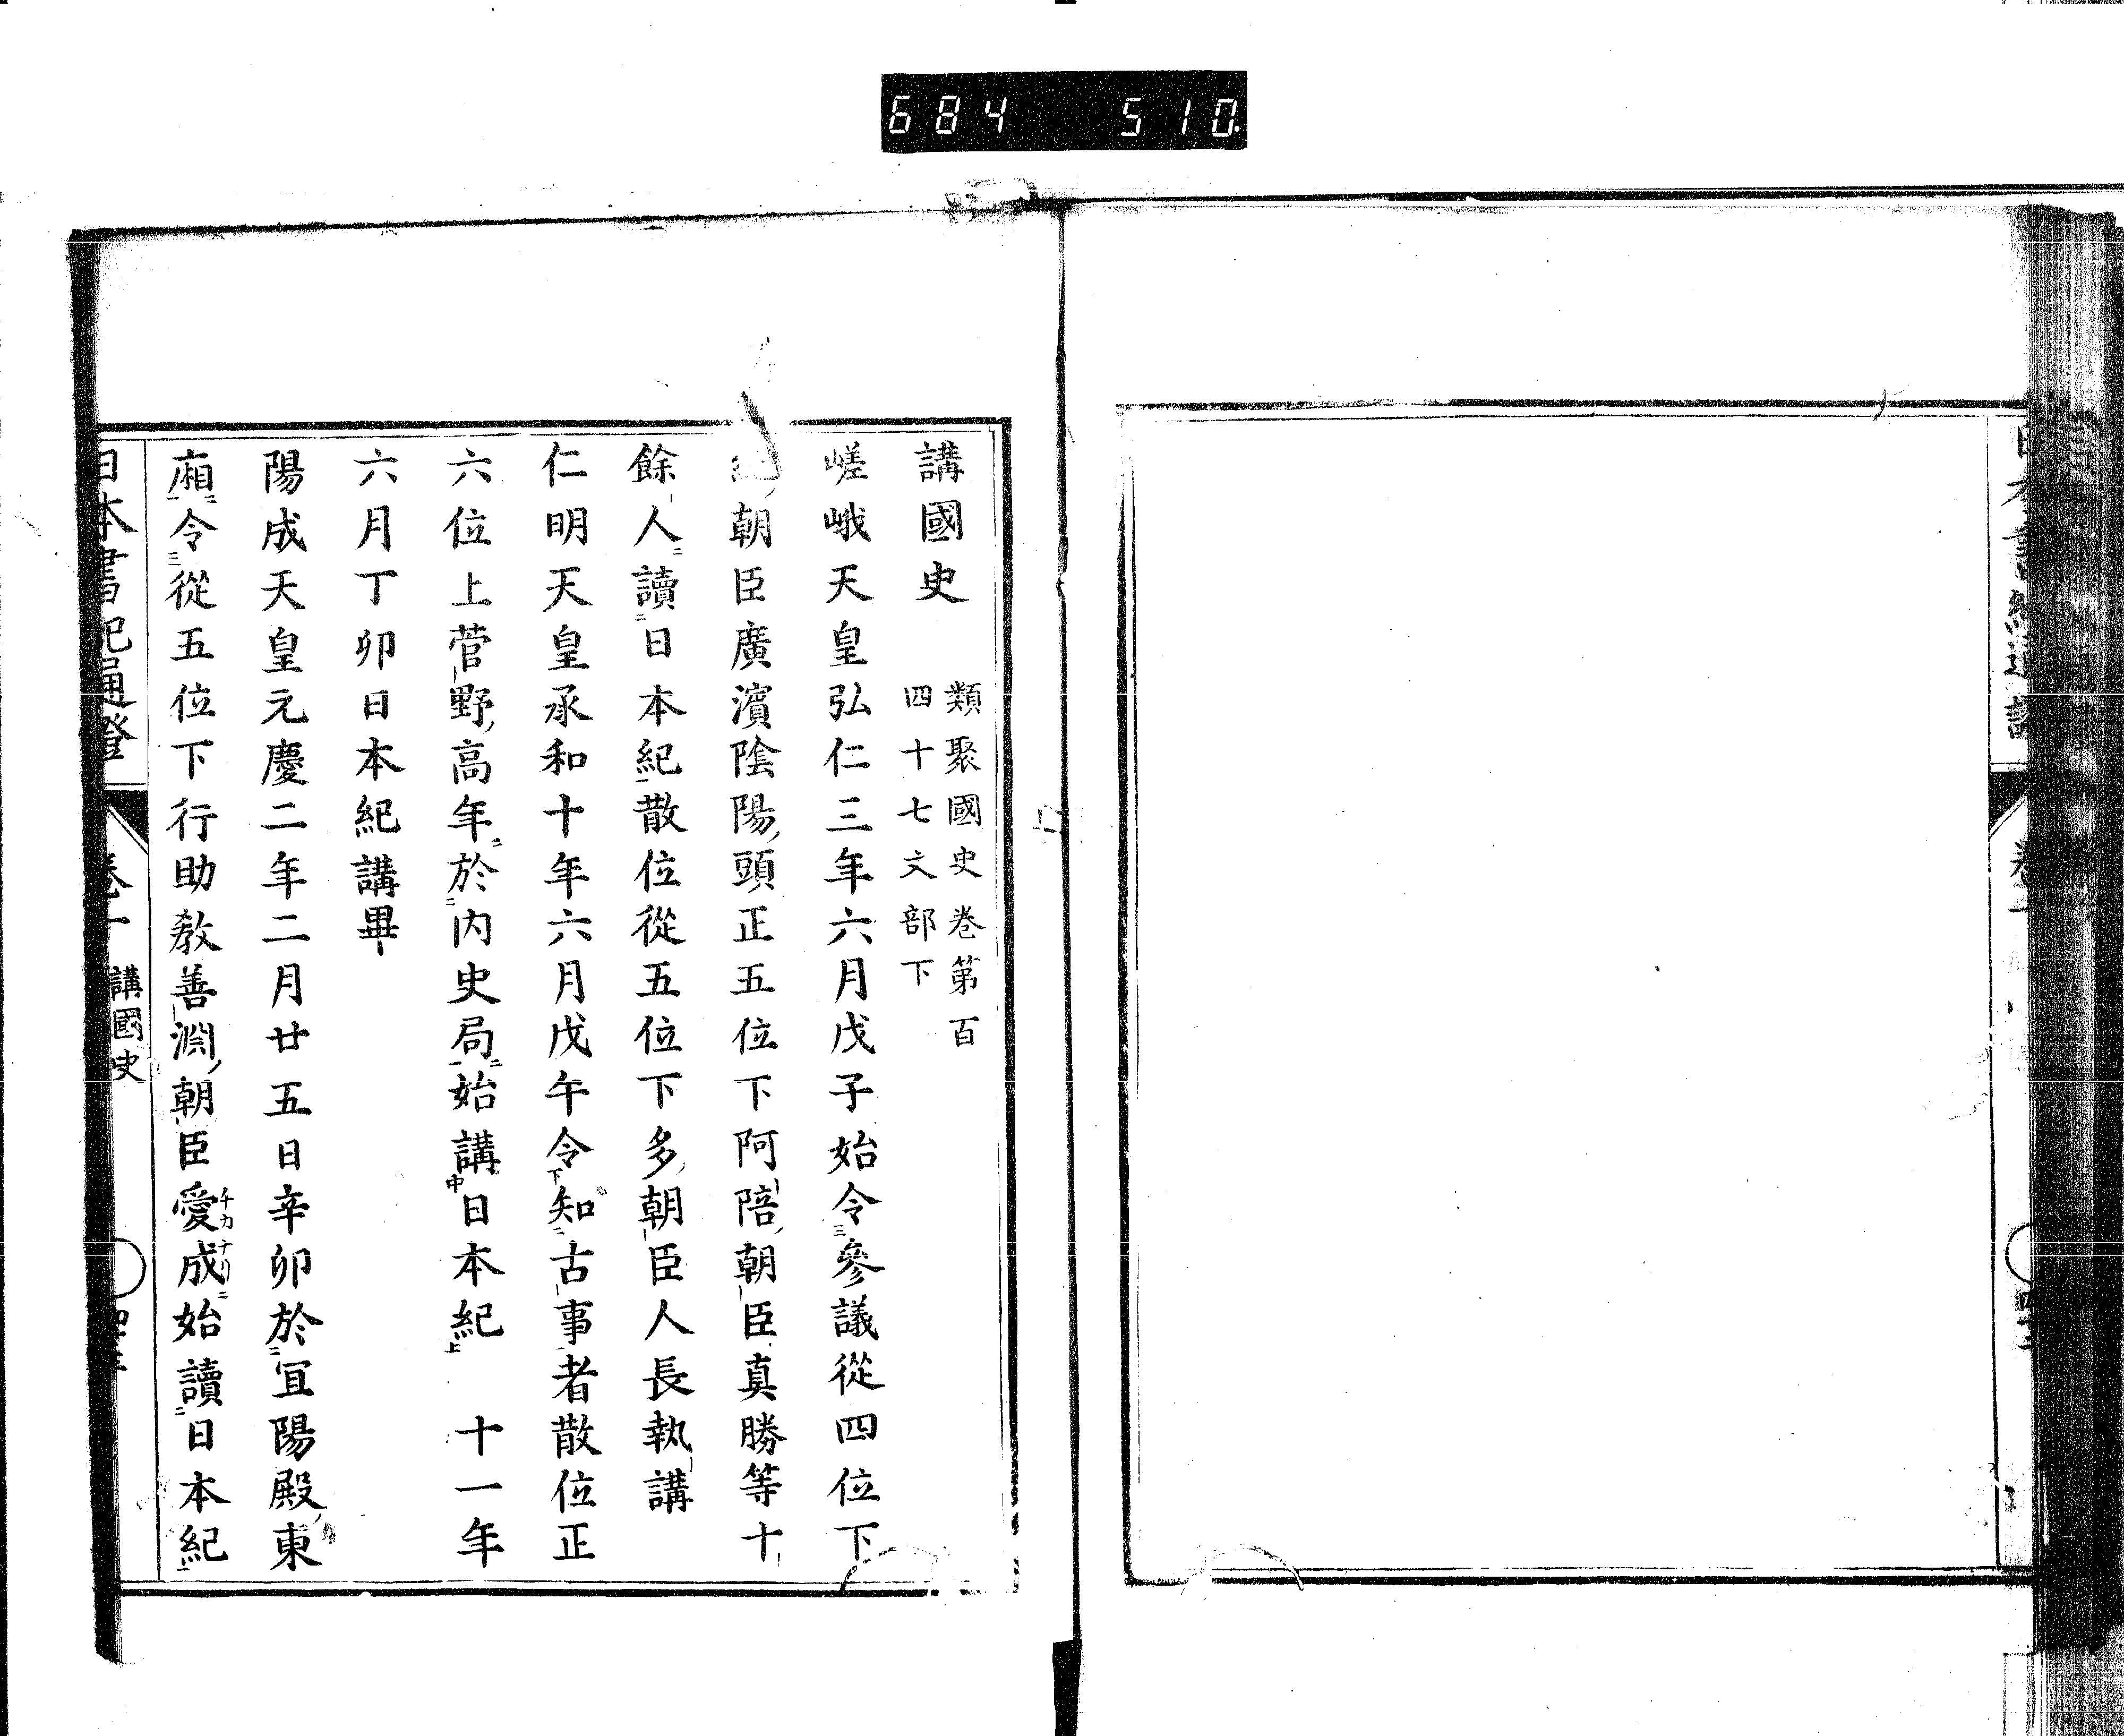 684 510
講國史 類聚國史卷第百
四十七文部下
嵯峨天皇弘仁三年六月戊子始令參議從四位下
紀朝臣廣濱陰陽頭正五位下阿陪朝臣真勝等十
餘人讀日本紀散位從五位下多朝臣人長執講
仁明天皇承和十年六月戊午令知古事者散位正
六位上菅野高年於内史局始講日本紀 十一年
六月丁卯日本紀講畢
陽成天皇元慶二年二月廿五日辛卯於宜陽殿東
廂令從五位下行助教善淵朝臣愛成始讀日本紀
日本書紀通證 卷一 講國史